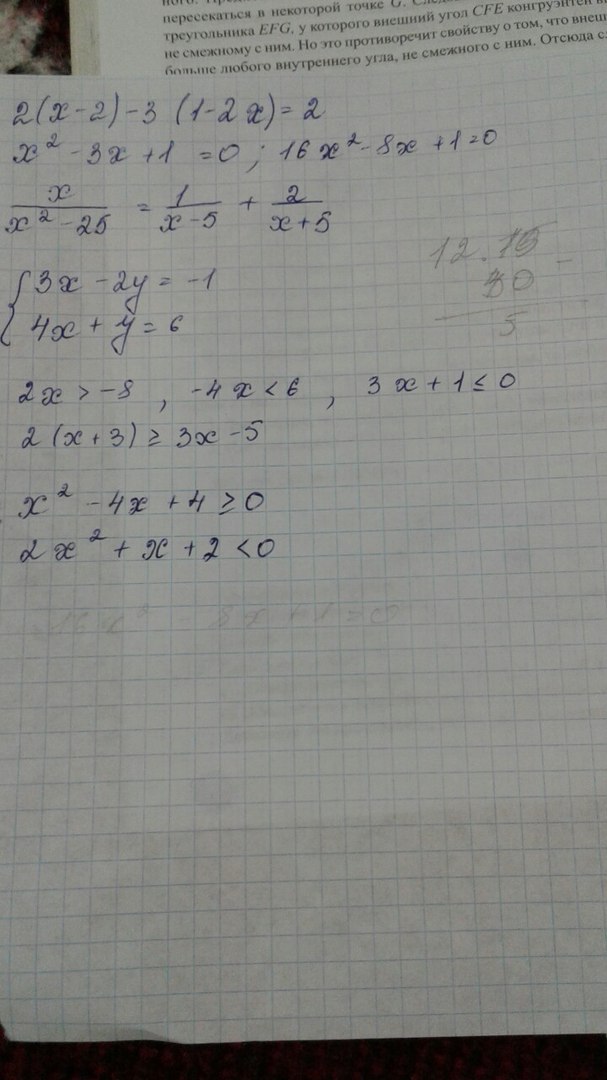 пересекаться в некоторой точке G.
треугольника EFG, у которого внешний угол CFE конгруэнтен
не смежному с ним. Но это противоречит свойству о том, что внеш
больше любого внутреннего угла, не смежного с ним. Отсюда
2(x-2)-3 (1-2x)=2
x² -3x+1 =0 ; 16x²-8x+1=0
x/(x²-25) = 1/(x-5) + 2/(x+5)
{3x-2y=-1
4x+y=6
12.15
30
5
2x>-8 , -4x<6 , 3x+1≤0
2(x+3)≥3x-5
x²-4x+4≥0
2x²+x+2<0
16x² - 8x+1=0